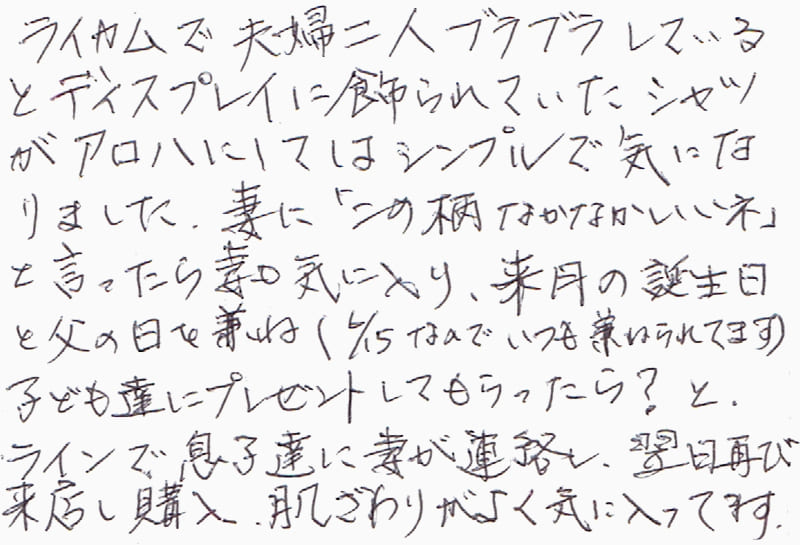 ライカムで夫婦二人ブラブラしている
とディスプレイに飾られていたシャツ
がアロハにしてはシンプルで気にな
りました。妻に「この柄なかなかいいネ」
と言ったら妻も気に入り、来月の誕生日
と父の日を兼ね(6/15なのでいつも兼ねられてます)
子ども達にプレゼントしてもらったら?と、
ラインで息子達に妻が連絡し、翌日再び
来店し購入。肌ざわりがよく気に入ってます。